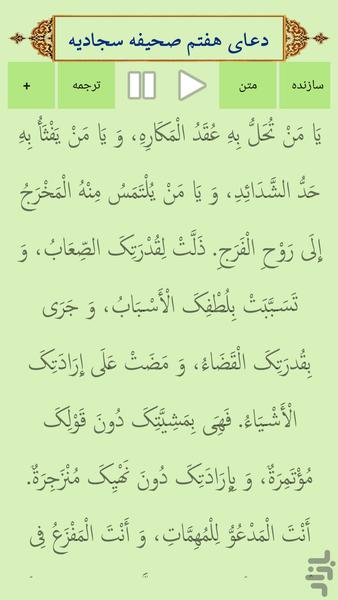 دعای هفتم صحیفه سجادیه
سازنده متن ترجمه +
یَا مَنْ تُحَلُّ بِهِ عُقَدُ الْمَکَارِهِ، وَ یَا مَنْ یَفْثَأُ بِهِ
حَدُّ الشَّدَائِدِ، وَ یَا مَنْ یُلْتَمَسُ مِنْهُ الْمَخْرَجُ
إِلَی رَوْحِ الْفَرَجِ. ذَلَّتْ لِقُدْرَتِکَ الصِّعَابُ، وَ
تَسَبَّبَتْ بِلُطْفِکَ الْأَسْبَابُ، وَ جَرَی
بِقُدرَتِکَ الْقَضَاءُ، وَ مَضَتْ عَلَی إِرَادَتِکَ
الْأَشْیَاءُ. فَهِیَ بِمَشِیَّتِکَ دُونَ قَوْلِکَ
مُؤْتَمِرَةٌ، وَ بِإِرَادَتِکَ دُونَ نَهْیِکَ مُنْزَجِرَةٌ.
أَنْتَ الْمَدْعُوُّ لِلْمُهِمَّاتِ، وَ أَنْتَ الْمَفْزَعُ فِی
بازار